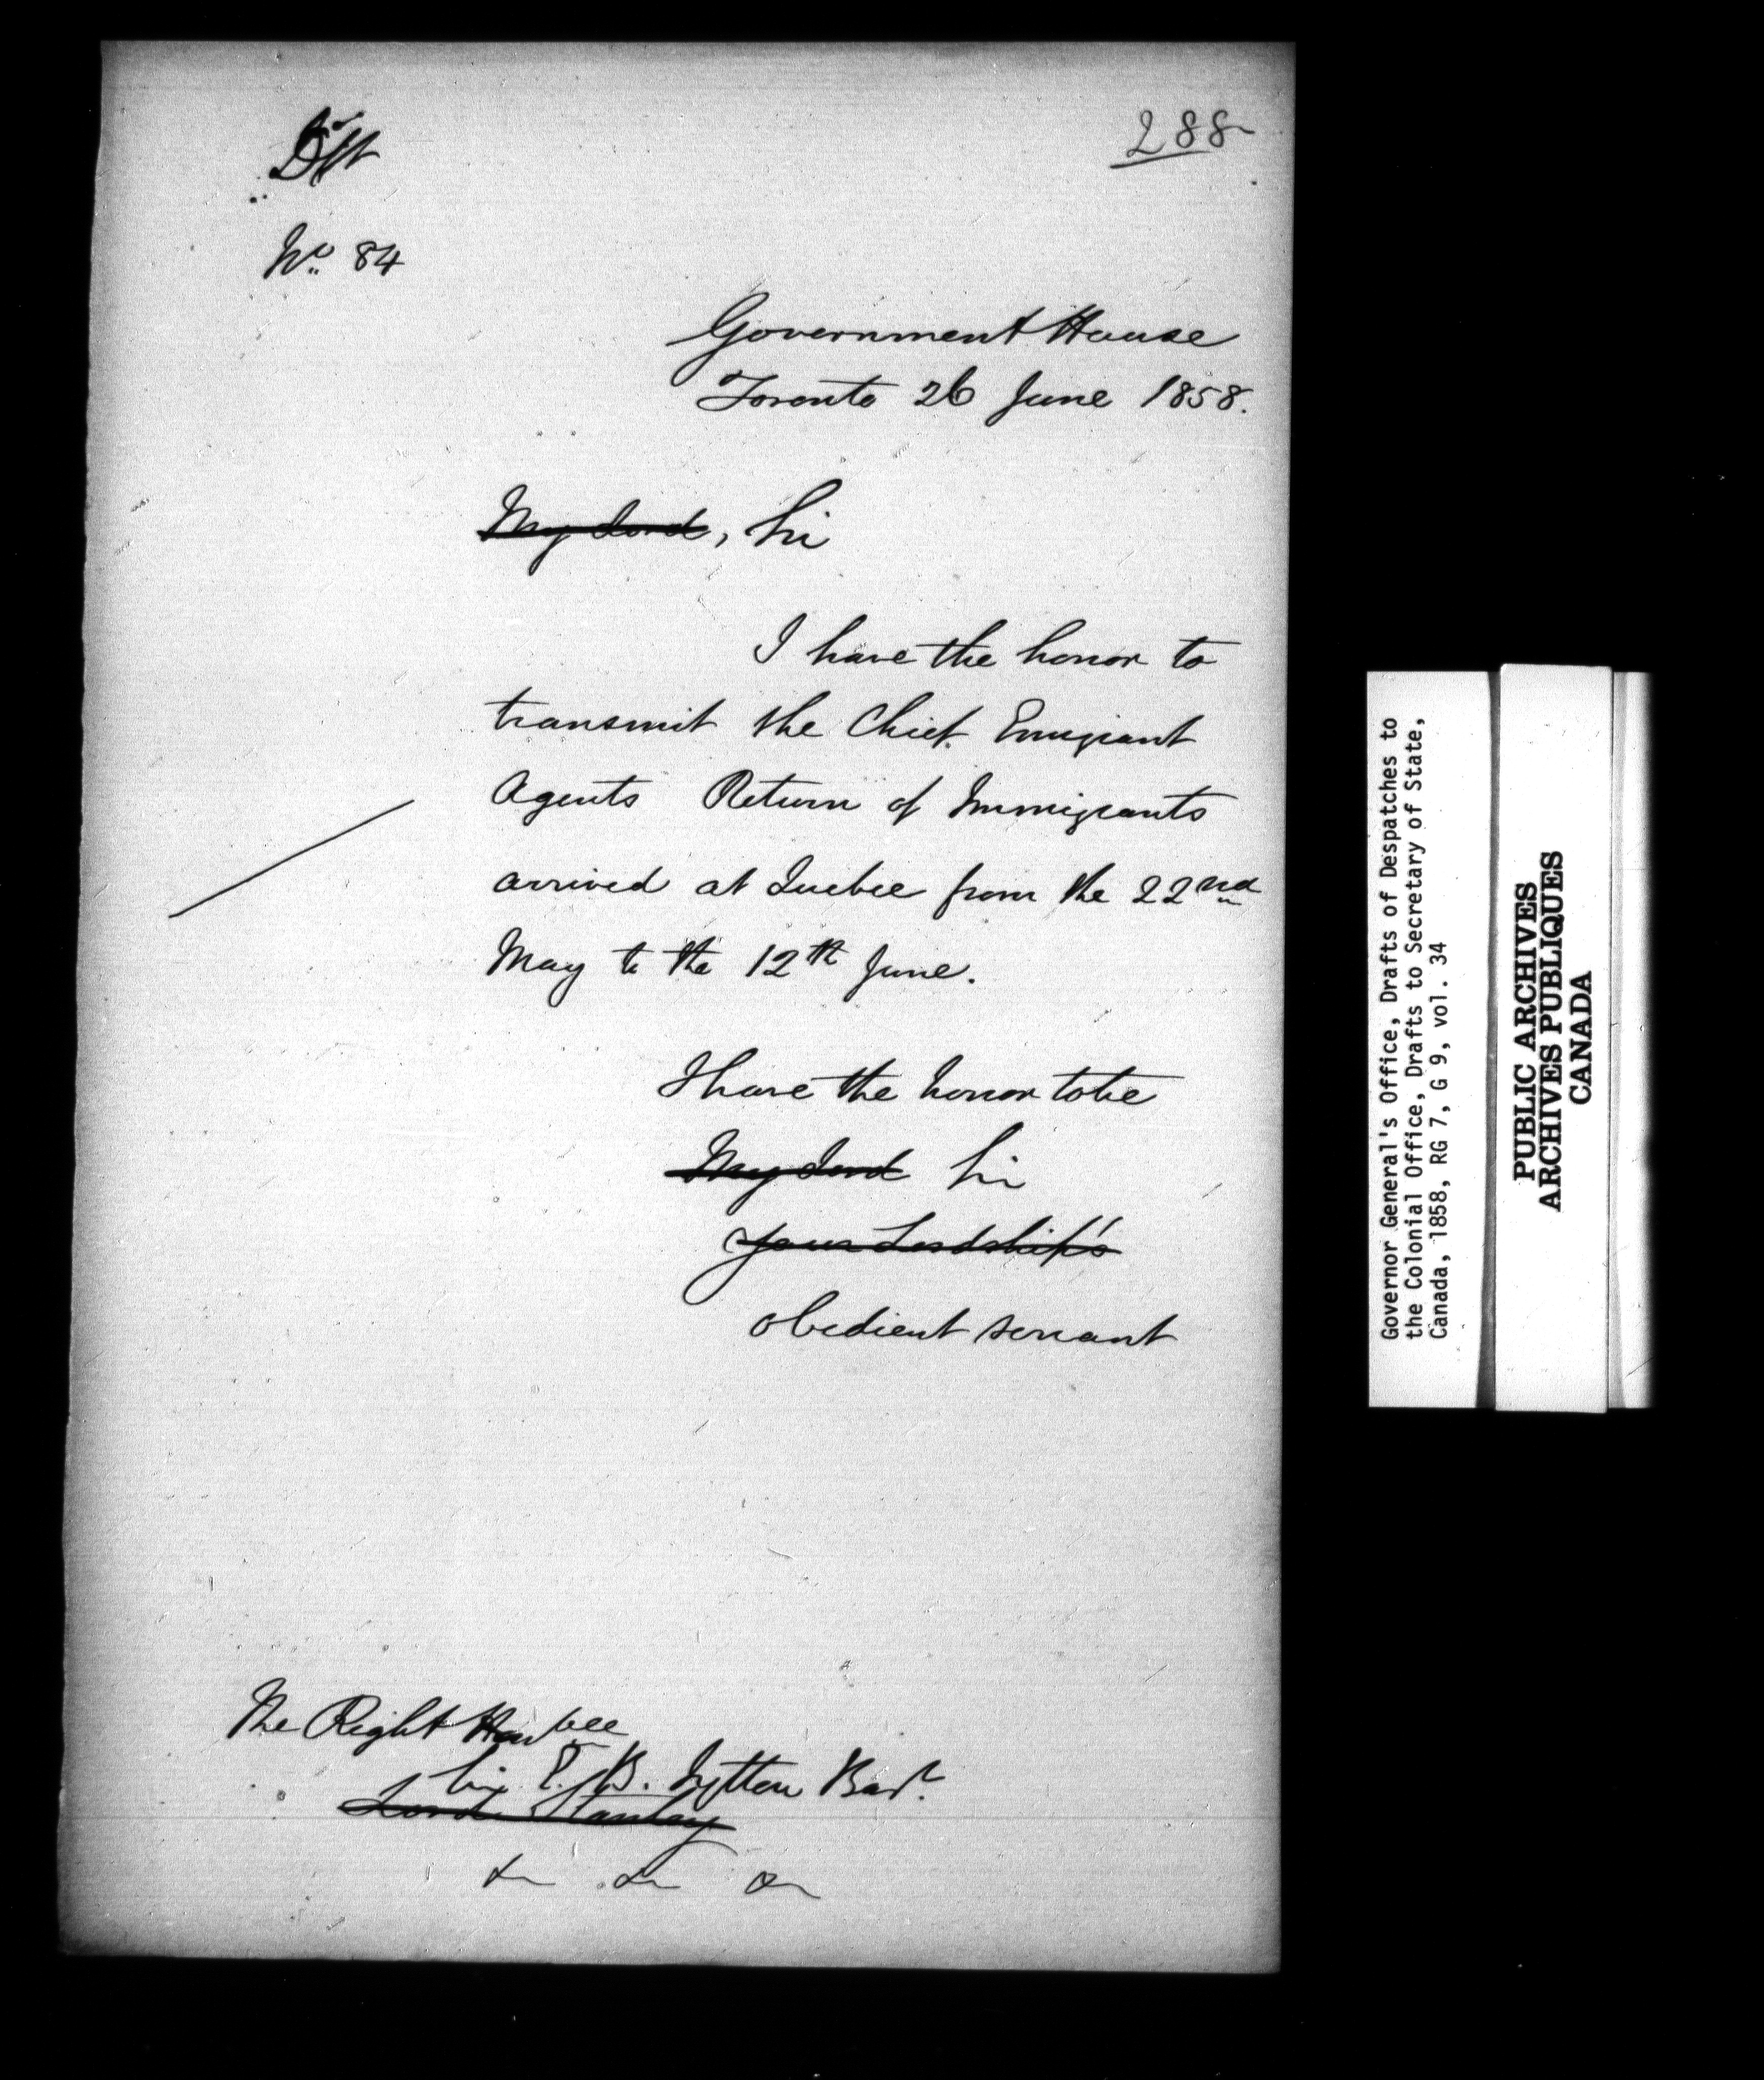 Dft
288
No. 84
Government House
Toronto 26 June 1858.
My Lord, Sir
I have the honor to
transmit the Chief Emigrant
Agents Return of Immigrants
arrived at Quebec from the 22nd
May to the 12th June.
I have the honor to be
My Lord Sir
Your Lordship's
obedient servant
The Right Honble
Sir E. B. Lytton Bart
Lord Stanley
&c &c &c
Governor General's Office, Drafts of Despatches to
the Colonial Office, Drafts to Secretary of State,
Canada, 1858, RG 7, G 9, vol. 34
PUBLIC ARCHIVES
ARCHIVES PUBLIQUES
CANADA